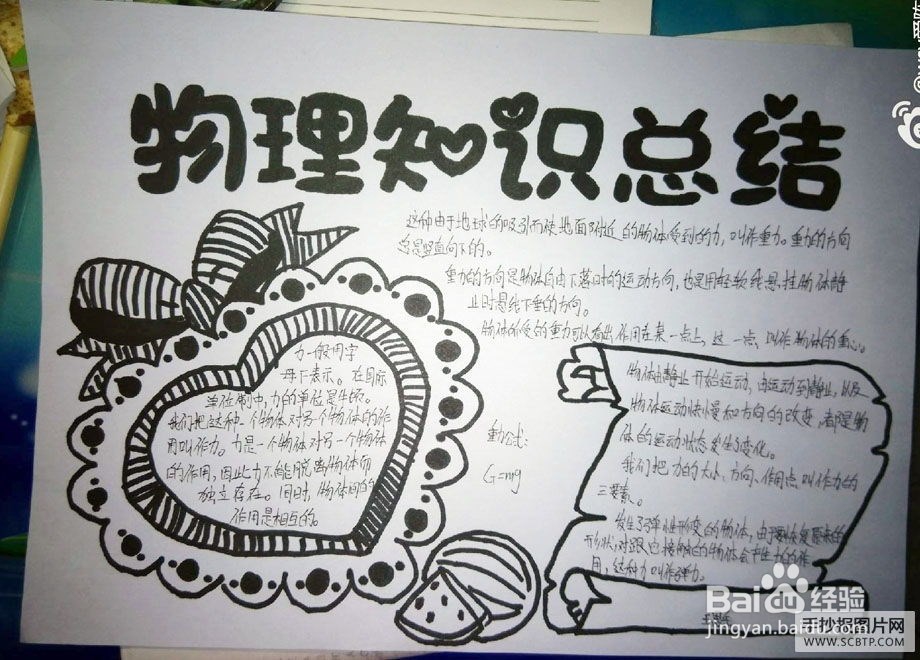 物理知识总结
这种由于地球的吸引而使地面附近的物体受到的力，叫作重力。重力的方向
总是竖直向下的。
重力的方向是物体自由下落时的运动方向，也是用轻软线悬挂物体静
止时悬线下垂的方向。
物体所受的重力可以看出作用在某一点上，这一点，叫作物体的重心。
力一般用字
母下表示。在国际
单位制中，力的单位是牛顿。
我们把这种一个物体对另一个物体的作
用叫作力。力是一个物体对另一个物体
的作用，因此力不能脱离物体而
独立存在。同时，物体间的
作用是相互的。
重公式：
G=mg
物体由静止开始运动，由运动到静止，以及
物体运动快慢和方向的改变，都是物
体的运动状态发生了变化。
我们把力的大小、方向、作用点叫作力的
三要素。
发生了弹性形变的物体，由于要恢复原来的
形状，对跟它接触的物体会产生力的作
用，这种力叫作弹力。
Baidu经验
jingyan.baidu.com
手抄报图片网
WWW.SCBTP.COM